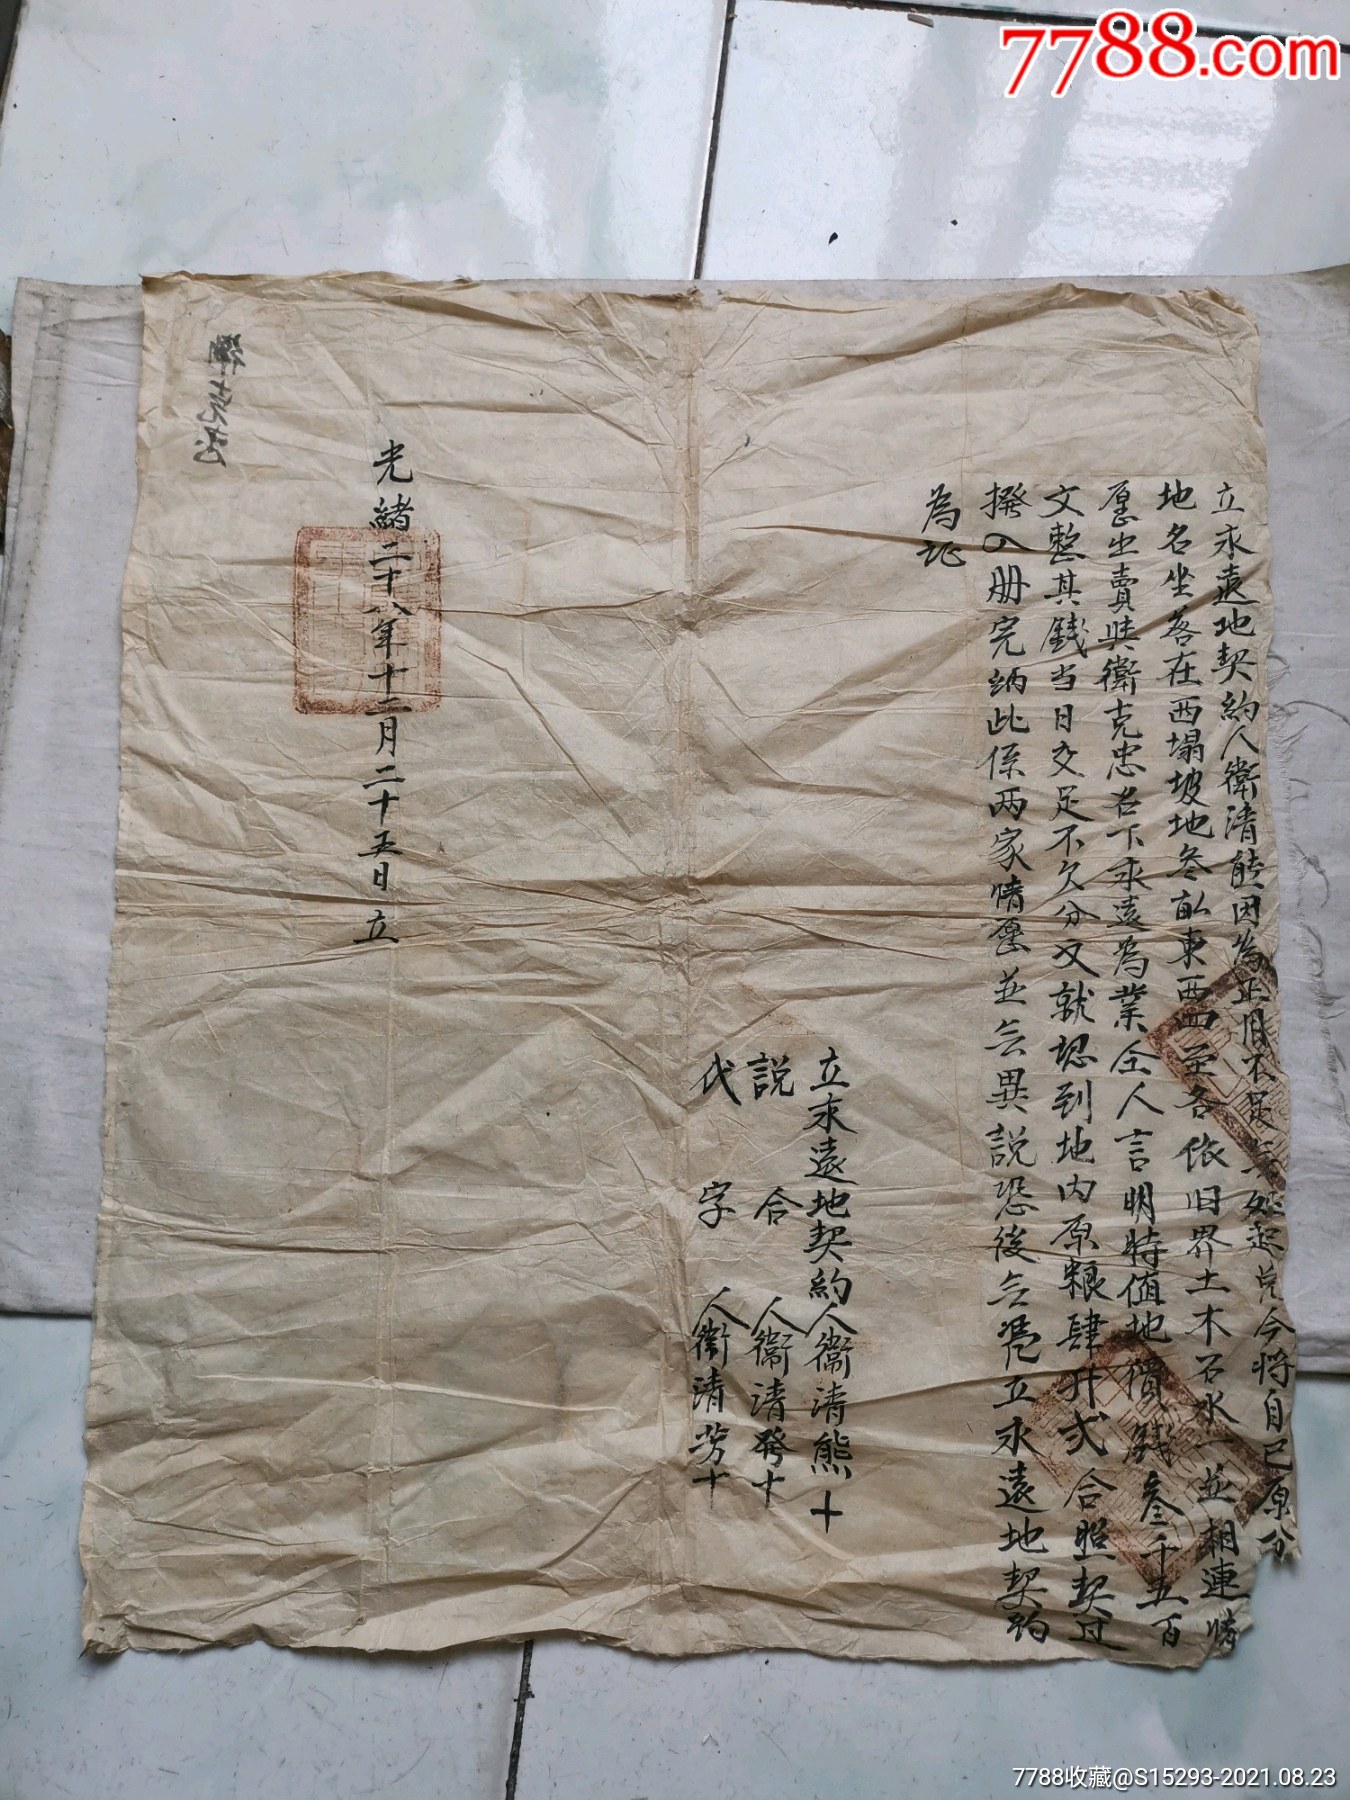 7788.com
立永遠地契約人衛清熊因為正用不足今將自己原分
地名坐落在西塌坡地叁畝東西四至各依旧界土木石水一並相連情
愿出賣與衛克忠名下永遠為業仝人言明時值地價錢叁千五百
文整其錢当日交足不欠分文就認到地内原粮肆升弍合照契过
撥入册完納此係两家情愿並无異説恐後无凴立永遠地契約
為証
立永遠地契約人衛清熊十
説合人衛清發十
代字人衛清芳十
光緒二十八年十二月二十五日立
7788收藏@S15293-2021.08.23